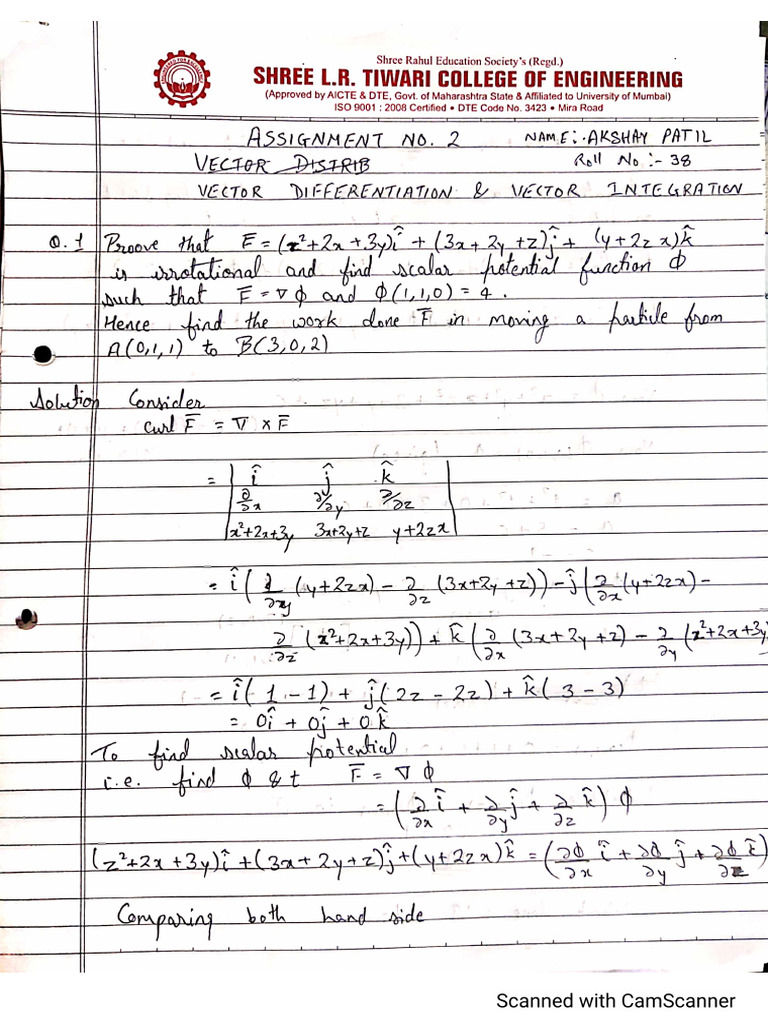 Shree Rahul Education Society's (Regd.)
SHREE L.R. TIWARI COLLEGE OF ENGINEERING
(Approved by AICTE & DTE, Govt. of Maharashtra State & Affiliated to University of Mumbai)
ISO 9001 : 2008 Certified • DTE Code No. 3423 • Mira Road
ASSIGNMENT NO. 2 NAME:- AKSHAY PATIL
VECTOR DISTRIB Roll No :- 38
VECTOR DIFFERENTIATION & VECTOR INTEGRATION
Q.1 Proove that F̅ = (z²+2x+3y)î + (3x+2y+z)ĵ + (y+2zx)k̂
is irrotational and find scalar potential function ϕ
such that F̅ = ∇ϕ and ϕ(1,1,0) = 4.
Hence find the work done F̅ in moving a particle from
A(0,1,1) to B(3,0,2)
Solution Consider
curl F̅ = ∇ × F̅
= | î ĵ k̂ |
| ∂/∂x ∂/∂y ∂/∂z |
| x²+2x+3y 3x+2y+z y+2zx |
= î(∂/∂y (y+2zx) − ∂/∂z (3x+2y+z)) − ĵ(∂/∂x (y+2zx) −
∂/∂z (z²+2x+3y)) + k̂(∂/∂x (3x+2y+z) − ∂/∂y (z²+2x+3y
= î(1−1) + ĵ(2z−2z) + k̂(3−3)
= 0î + 0ĵ + 0k̂
To find scalar potential
i.e. find ϕ & t F̅ = ∇ϕ
= (∂/∂x î + ∂/∂y ĵ + ∂/∂z k̂) ϕ
(z²+2x+3y)î + (3x+2y+z)ĵ + (y+2zx)k̂ = (∂ϕ/∂x î + ∂ϕ/∂y ĵ + ∂ϕ/∂z k̂)
Comparing both hand side
Scanned with CamScanner